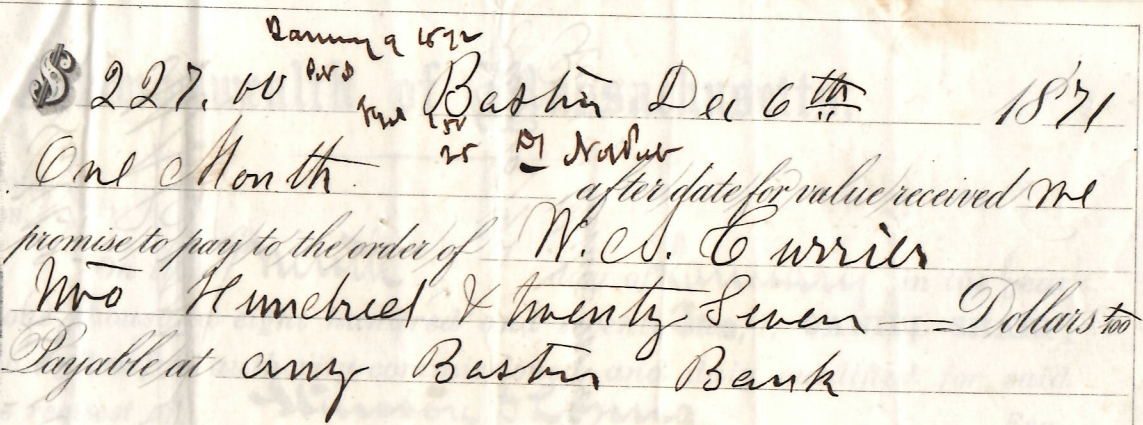 January 9 1872
$ 227.00 Boston Dec 6th 1871
One Month after date for value received we
promise to pay to the order of W. S. Currier
Two Hundred & twenty Seven — Dollars
Payable at any Boston Bank